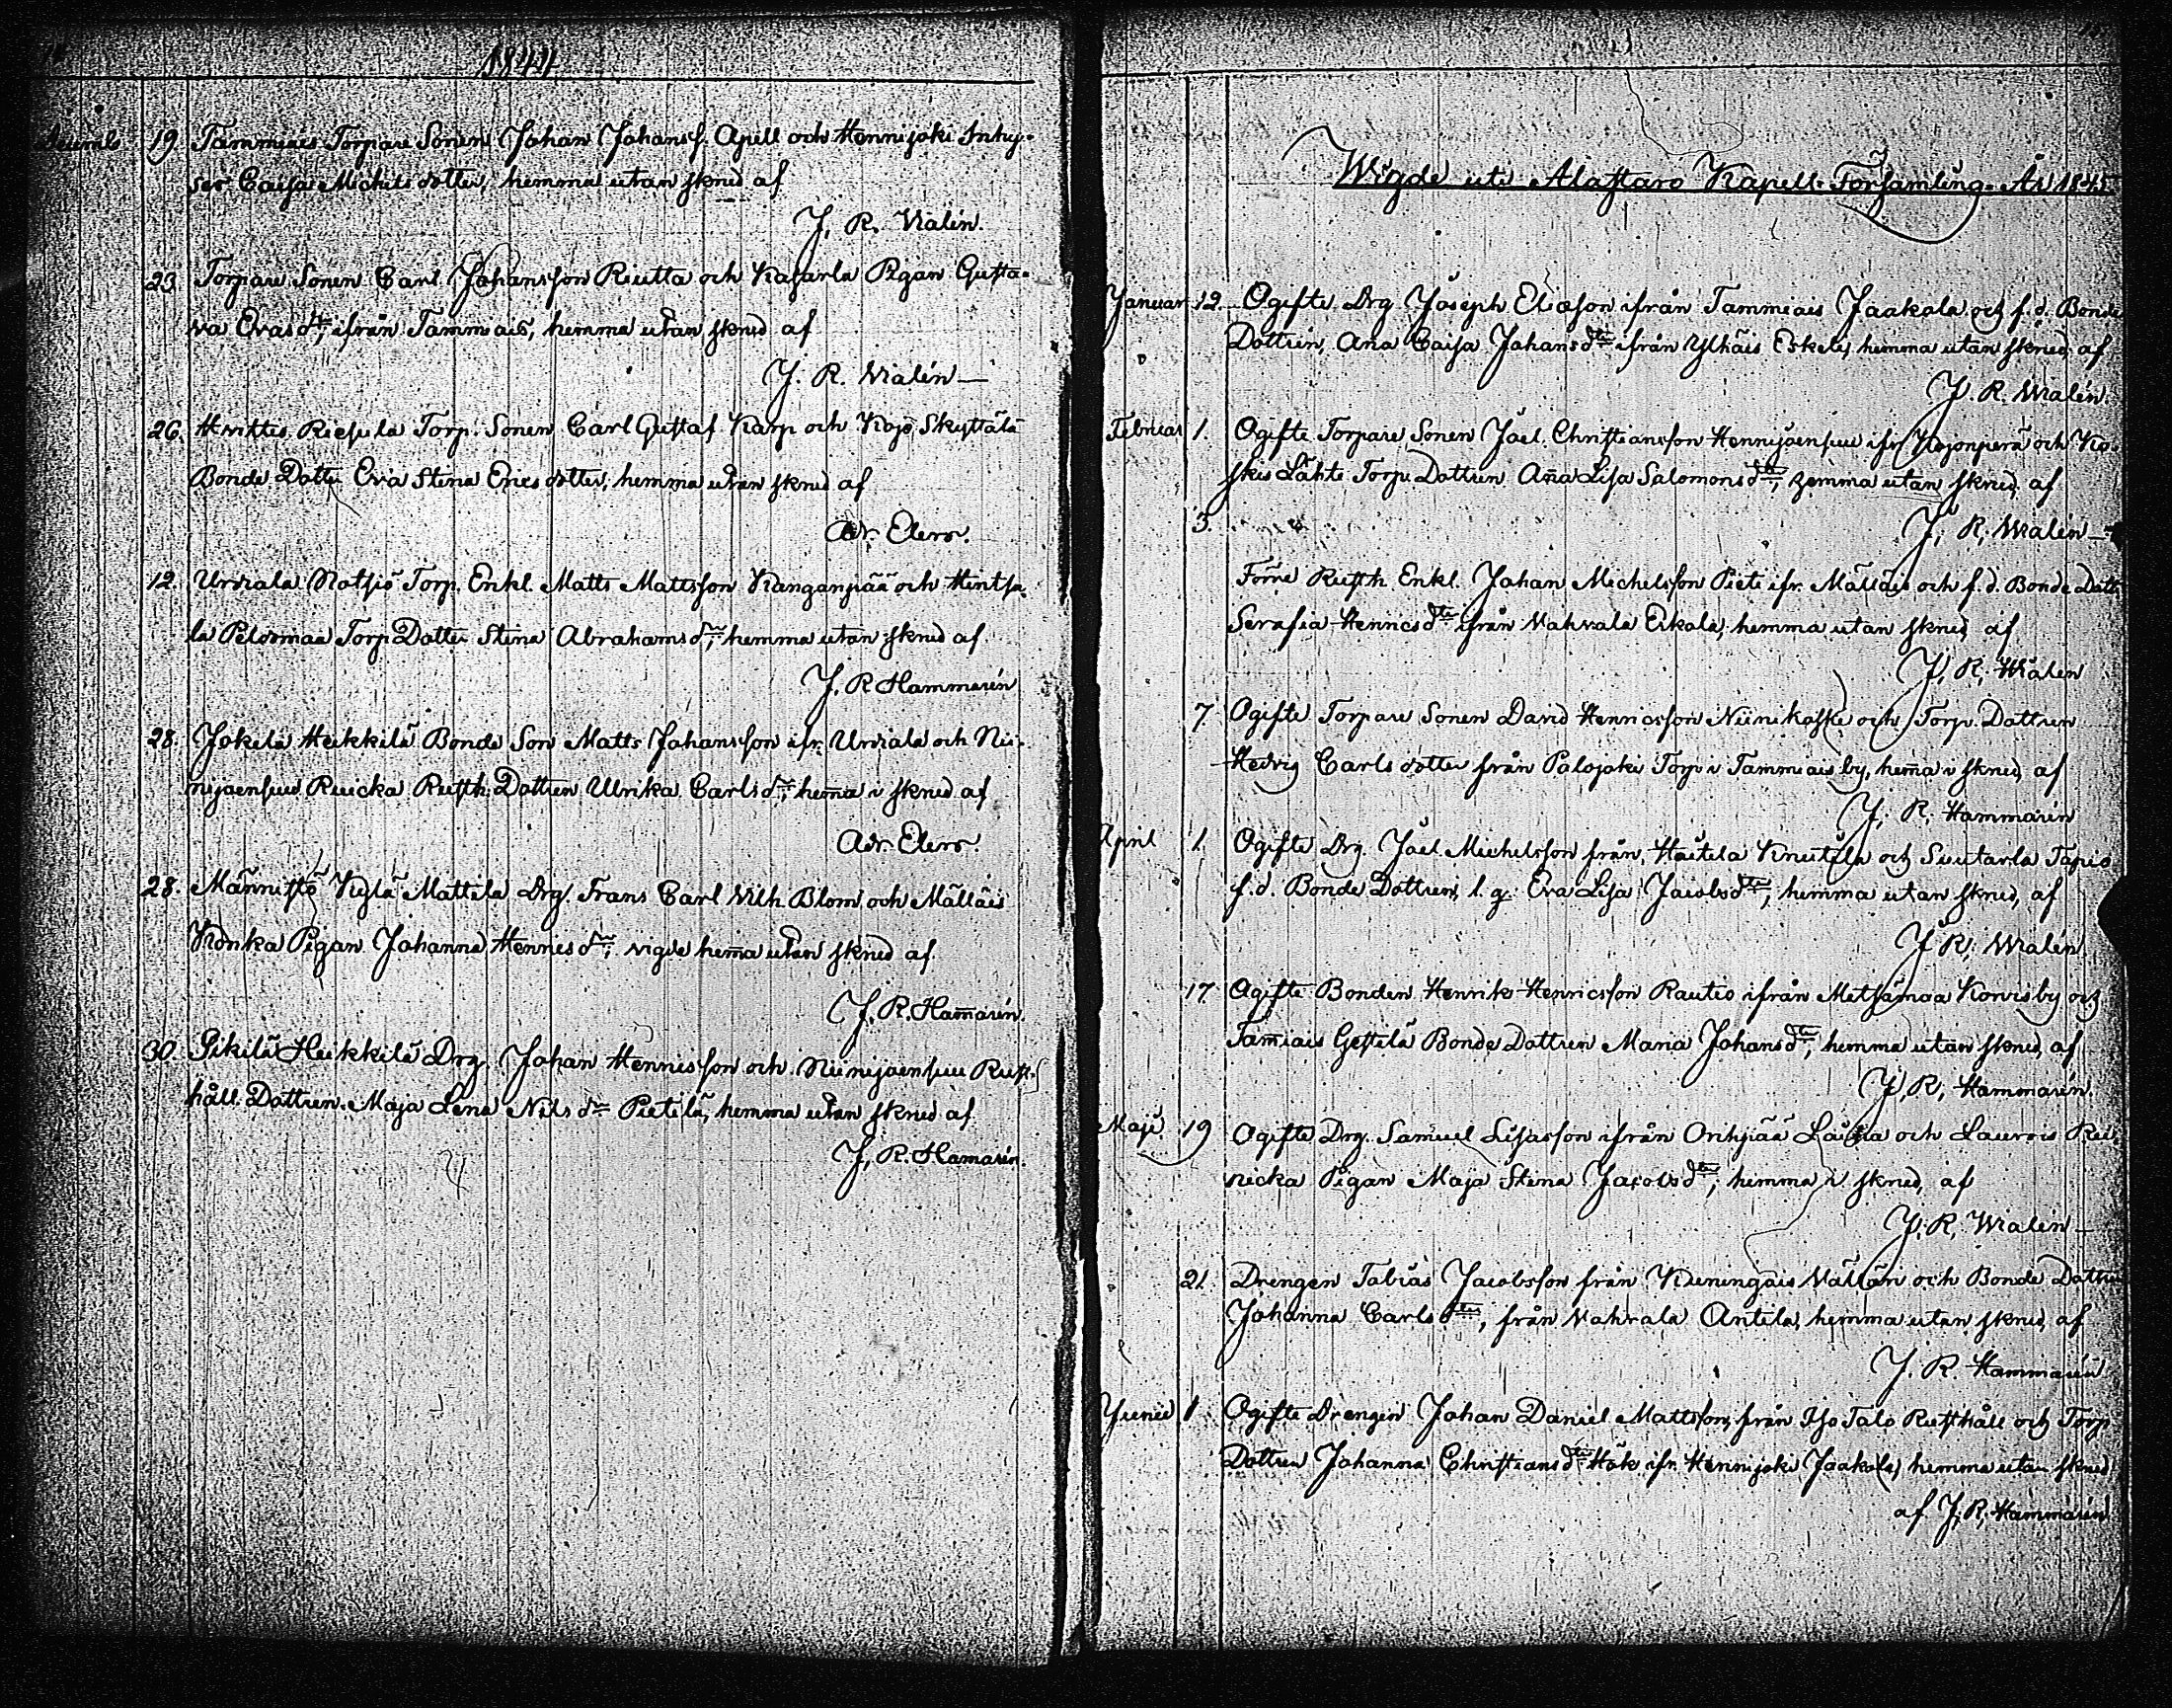 1844
Decemb 19. Tammiais Torpare Sonen Johan Johanss. Apell och Hennijoki Inhy-
ses Caisa Michels dotter, hemma utan skrud af
J. R. Walén.
23. Torpare Sonen Carl Johansson Riutta och Kasarla Pigan Gusta-
va Evas dtr, ifrån Tammiais, hemma utan skrud af
J. R. Walén
26. Hvittis Riesula Torp. Sonen Carl Gustaf Karp och Kojo Skyttälä
Bonde Dotter Eva Stina Erics dotter, hemma utan skrud af
Adr. Elers.
12. Urdiala Notsjö Torp. Enkl. Matts Mattsson Kanganpää och Hintsa-
la Peldomaa Torp Dotter Stina Abrahams dtr, hemma utan skrud af
J. R Hammarén
28. Jokela Heikkilä Bonde Son Matts Johansson ifr. Urdiala och Nii-
nijoensuu Ruicka Rusth. Dottren Ulrika Carls dtr, hem̄a i skrud af
Adr. Elers.
28. Männistö Kylä Mattila Drg. Frans Carl Vilh. Blom och Mälläis
Konka Pigan Johanna Henrics dtr, vigde hem̄a utan skrud af
J. R. Ham̄arén.
30. Pikilä Heikkilä Drg Johan Henricsson och Niinijoensuu Rust-
håll. Dottren. Maja Lena Nils dr Pietilä, hemma utan skrud af
J. R. Hamarén.
Wigde uti Alastaro Kapell-Församling. År 1845
Januar 12. Ogifte Drg Joseph Eliæson ifrån Tammiais Jaakola och f. d. Bonde
Dottren, Ana Caisa Johans dtr ifrån Ylhäis Eskeli, hemma utan skrud af
J. R. Walén.
Februar 1. Ogifte Torpare Sonen Joel Christiansson Hennijoensuu ifr Kojonperä och Ko-
skis Lähte Torp. Dottren An̄a Lisa Salomons dtr, hemma utan skrud, af
J. R. Walén
3.
Förre Rusth. Enkl. Johan Michelsson Pieti ifr. Mälläis och f. d. Bonde Dottr
Serafia Henrics dtr ifrån Vahvala Erkala, hemma utan skrud af
J. R. Walén
7. Ogifte Torpare Sonen David Henricsson Niinikoski och Torp. Dottren
Hedvig Carls dotter från Palojoki Torp i Tammiais by, hem̄a i skrud, af
J. R. Hammarén
April 1. Ogifte Drg. Joel Michelsson från Haitila Knutila och Suutarla Tapio
f. d. Bonde Dottren, l. q. Eva Lisa Jacobs dtr, hemma utan skrud, af
J. R. Walén
17. Ogifte Bonden Henrik Henricsson Rautio ifrån Metsämaa Korvis by och
Tam̄iais Gestilä Bonde Dottren Maria Johans dtr, hemma utan skrud, af
J. R. Hammarén.
Maji 19 Ogifte Drg. Samuel Lisasson ifrån Orihpää Laiha och Laurois Rei-
nicka Pigan Maja Stina Jacobs dtr, hemma i skrud, af
J. R. Walén
21. Drengen Tobias Jacobsson från Kuningais Mällän och Bonde Dottren
Johanna Carls dtr, från Vahvala Antila, hemma utan skrud, af
J. R. Hammarén
Junii 1 Ogifte Drengen Johan Daniel Mattsson, från Iso Talo Rusthåll och Torp
Dottren Johanna Christians dtr Hök ifr. Hennijoki Jaakola, hemma utan skrud
af J. R. Hammarén